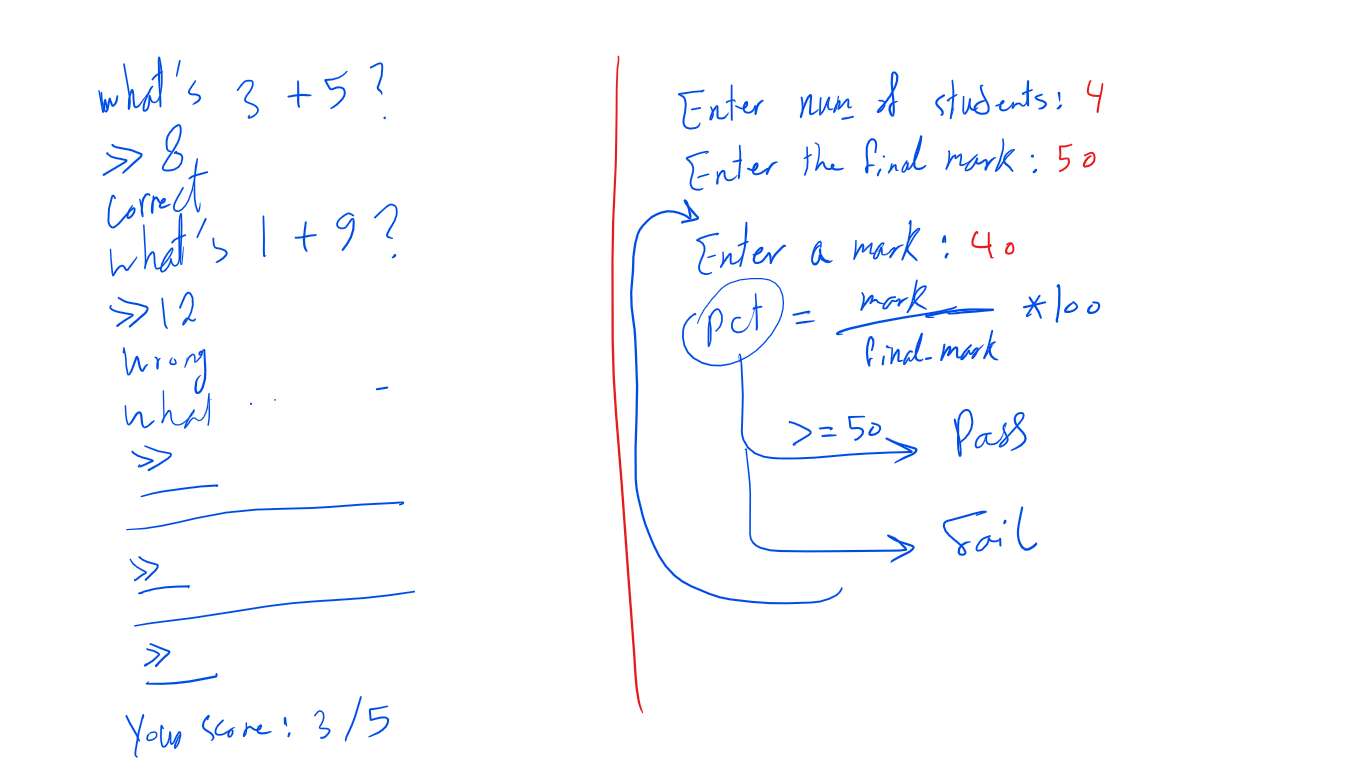 what's 3 + 5 ?
>> 8
correct
what's 1 + 9 ?
>> 12
wrong
what . . -
>>
>>
>>
Your score: 3/5
Enter num of students: 4
Enter the final mark: 50
Enter a mark: 40
pct = mark / final_mark * 100
>= 50 Pass
Fail